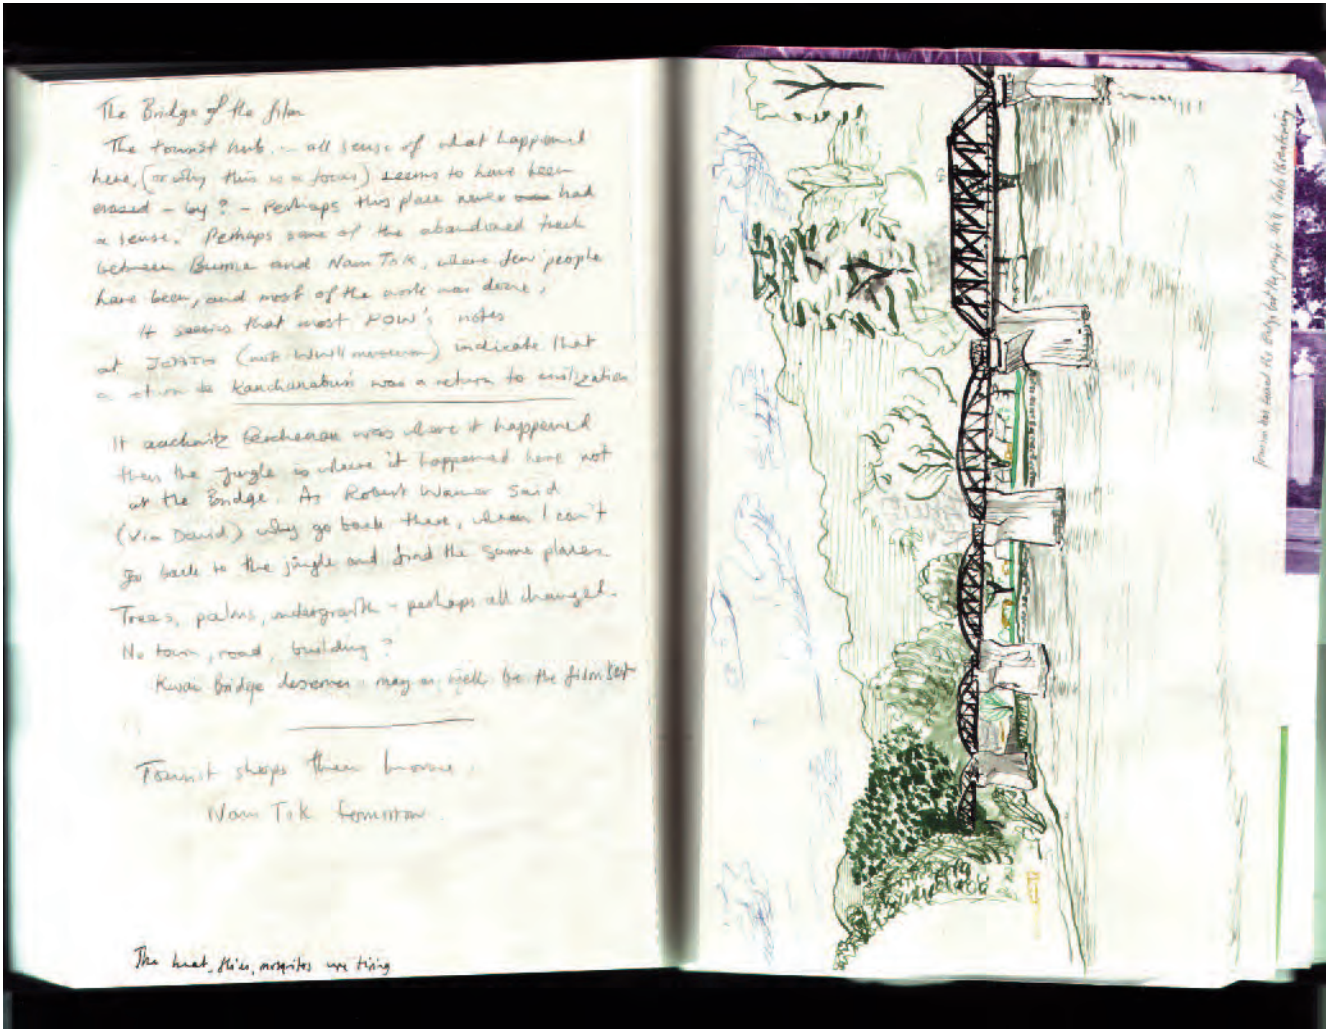 The Bridge of the film
The tourist hub. – all sense of what happened
here, (or why this is a focus) seems to have been
erased – by ? – Perhaps this place never had
a sense. Perhaps some of the abandoned track
between Burma and Nam Tok, where few people
have been, and most of the work was done,
It seems that most POW's notes
at JEATH (art WWII museum) indicate that
a return to Kanchanaburi was a return to civilization
If auschwitz was where it happened
then the jungle is where it happened here not
at the Bridge. As Robert said
(via David) why go back there, when I can't
go back to the jungle and find the same places
Trees, palms, undergrowth – perhaps all changed.
No town, road, building ?
Kwai Bridge may as well be the film set
Tourist shops then home.
Nam Tok tomorrow
The heat, flies, mosquitos are tiring
behind the Bridge but the people this looks threatening